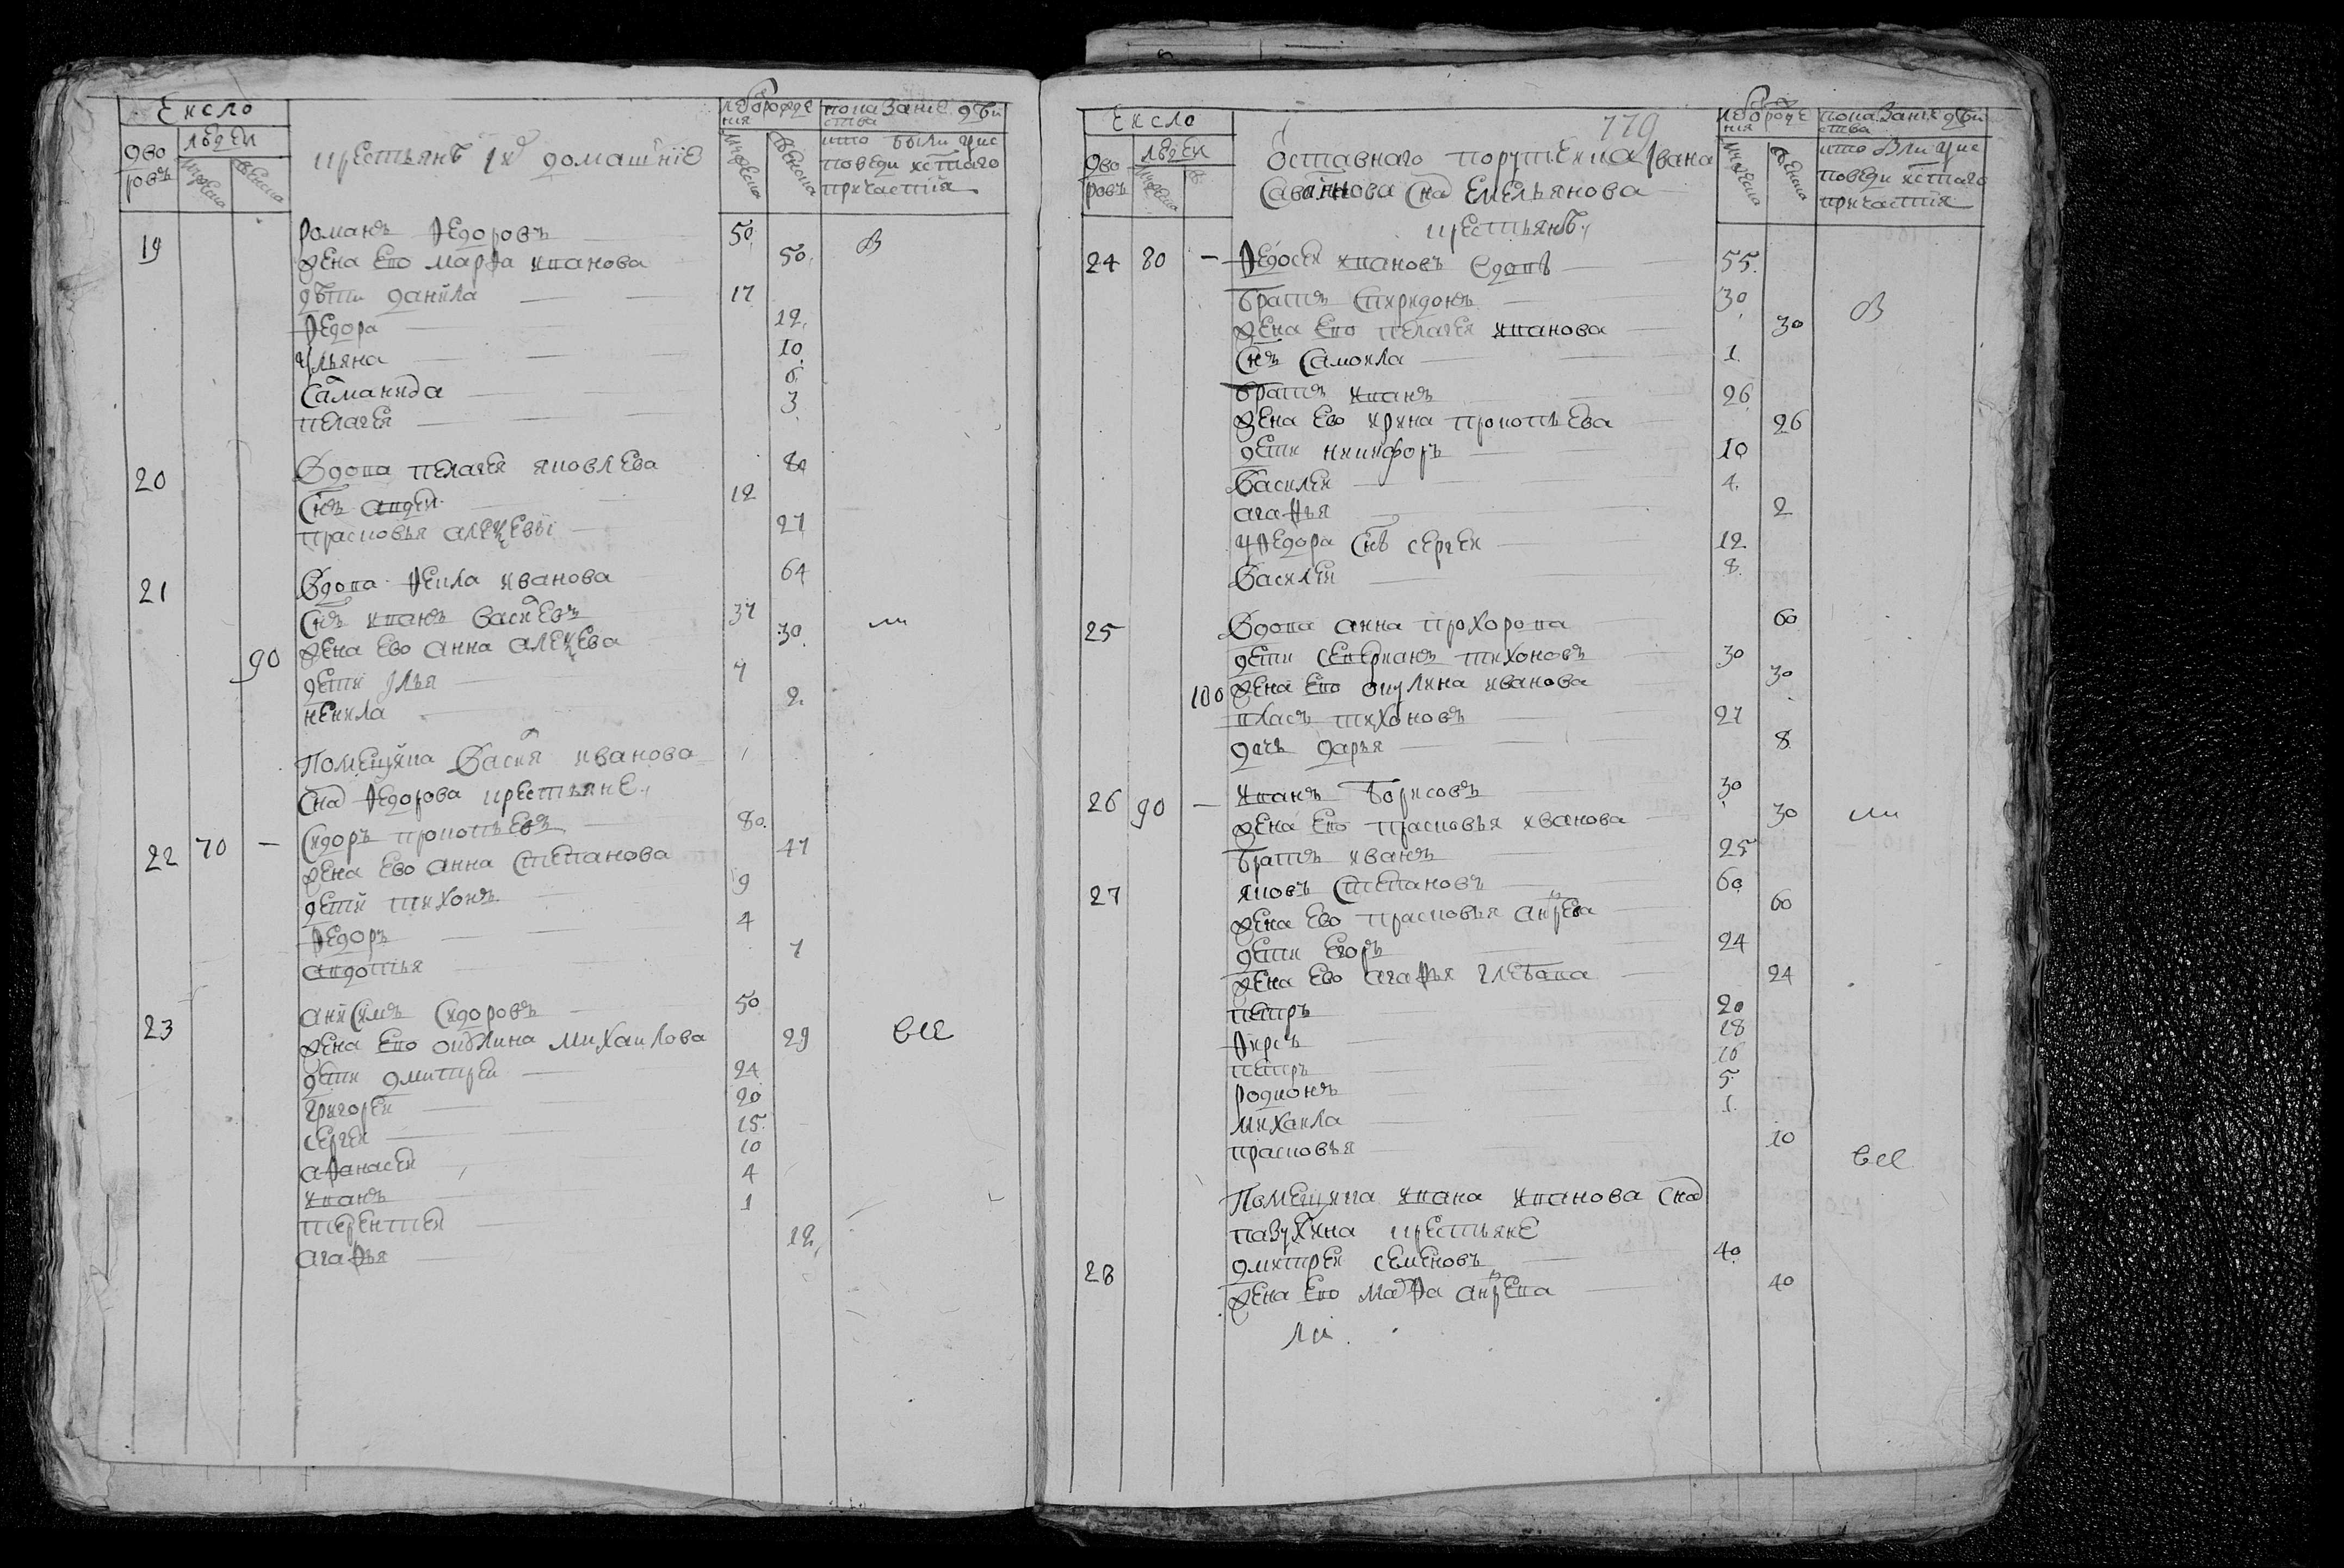 Число
дворовъ
людеи
мужеска
женска
крестьянъ їх домашнїе
лѣторожде
ния
мужеска
женска
показание дѣи
ства
кто были уис
поведи истаго
причастїя
19
Романъ Федоровъ 50
жена Ево марфа иванова 50
В
дѣти данила 17
федора 12
Ульяна 10
Саманида 6
пелагея 3
20
Вдова пелагея яковлева 80
Снъ авдеи 12
прасковья алеѯевы 27
21
Вдова фекла иванова 64
Снъ иванъ васиевъ 37
ли
90 жена Ево анна алеѯева 30
дети Илья 7
ненила 2
Помещика Васия иванова
Сна федорова крестьяне
22 70 — Сидоръ прокопьевъ 80
жена Ево анна Степанова 47
дети тихонъ 9
федоръ 4
авдотья 7
23
анисимъ Сидоровъ 50
жена Ево окулина михаилова 29
все
дети дмитреи 24
григореи 20
сергеи 15
афанасеи 10
иванъ 4
терентеи 1
агафья 12
Число
дворовъ
людеи
мужеска
779
оставного порутчика Ивана
Савинова Сна Емельянова
крестьянѣ
лѣторожде
ния
мужеска
женска
показание дѣи
ства
кто вли уис
поведи истаго
причастїя
24 80 — федосеи ивановъ вдовъ 55
братъ Спиридонъ 30
В
жена Ево пелагея иванова 30
Снъ Самоила 1
братъ иванъ 26
жена Ево ирина прокопьева 26
дети никифоръ 10
Василеи 4
агафья 2
Уфедора Снъ сергеи 12
Василеи 8
25
Вдова анна прохорова 60
дети севериканъ тихоновъ 30
100 жена Ево окулина иванова 30
власъ тихоновъ 27
дочь дарья 8
26 90 — иванъ борисовъ 30
жена Ево прасковья иванова 30
ли
братъ иванъ 25
27
яковъ Степановъ 60
жена Ево прасковья андрева 60
дети Егоръ 24
жена Ево агафья глебова 24
петръ 20
фирсъ 18
петръ 16
родионъ 5
михаила 1
прасковья 10
все
Помещика ивана иванова Сна
пазухина крестьяне
28
дмитреи семеновъ 40
жена Ево марфа андрева 40